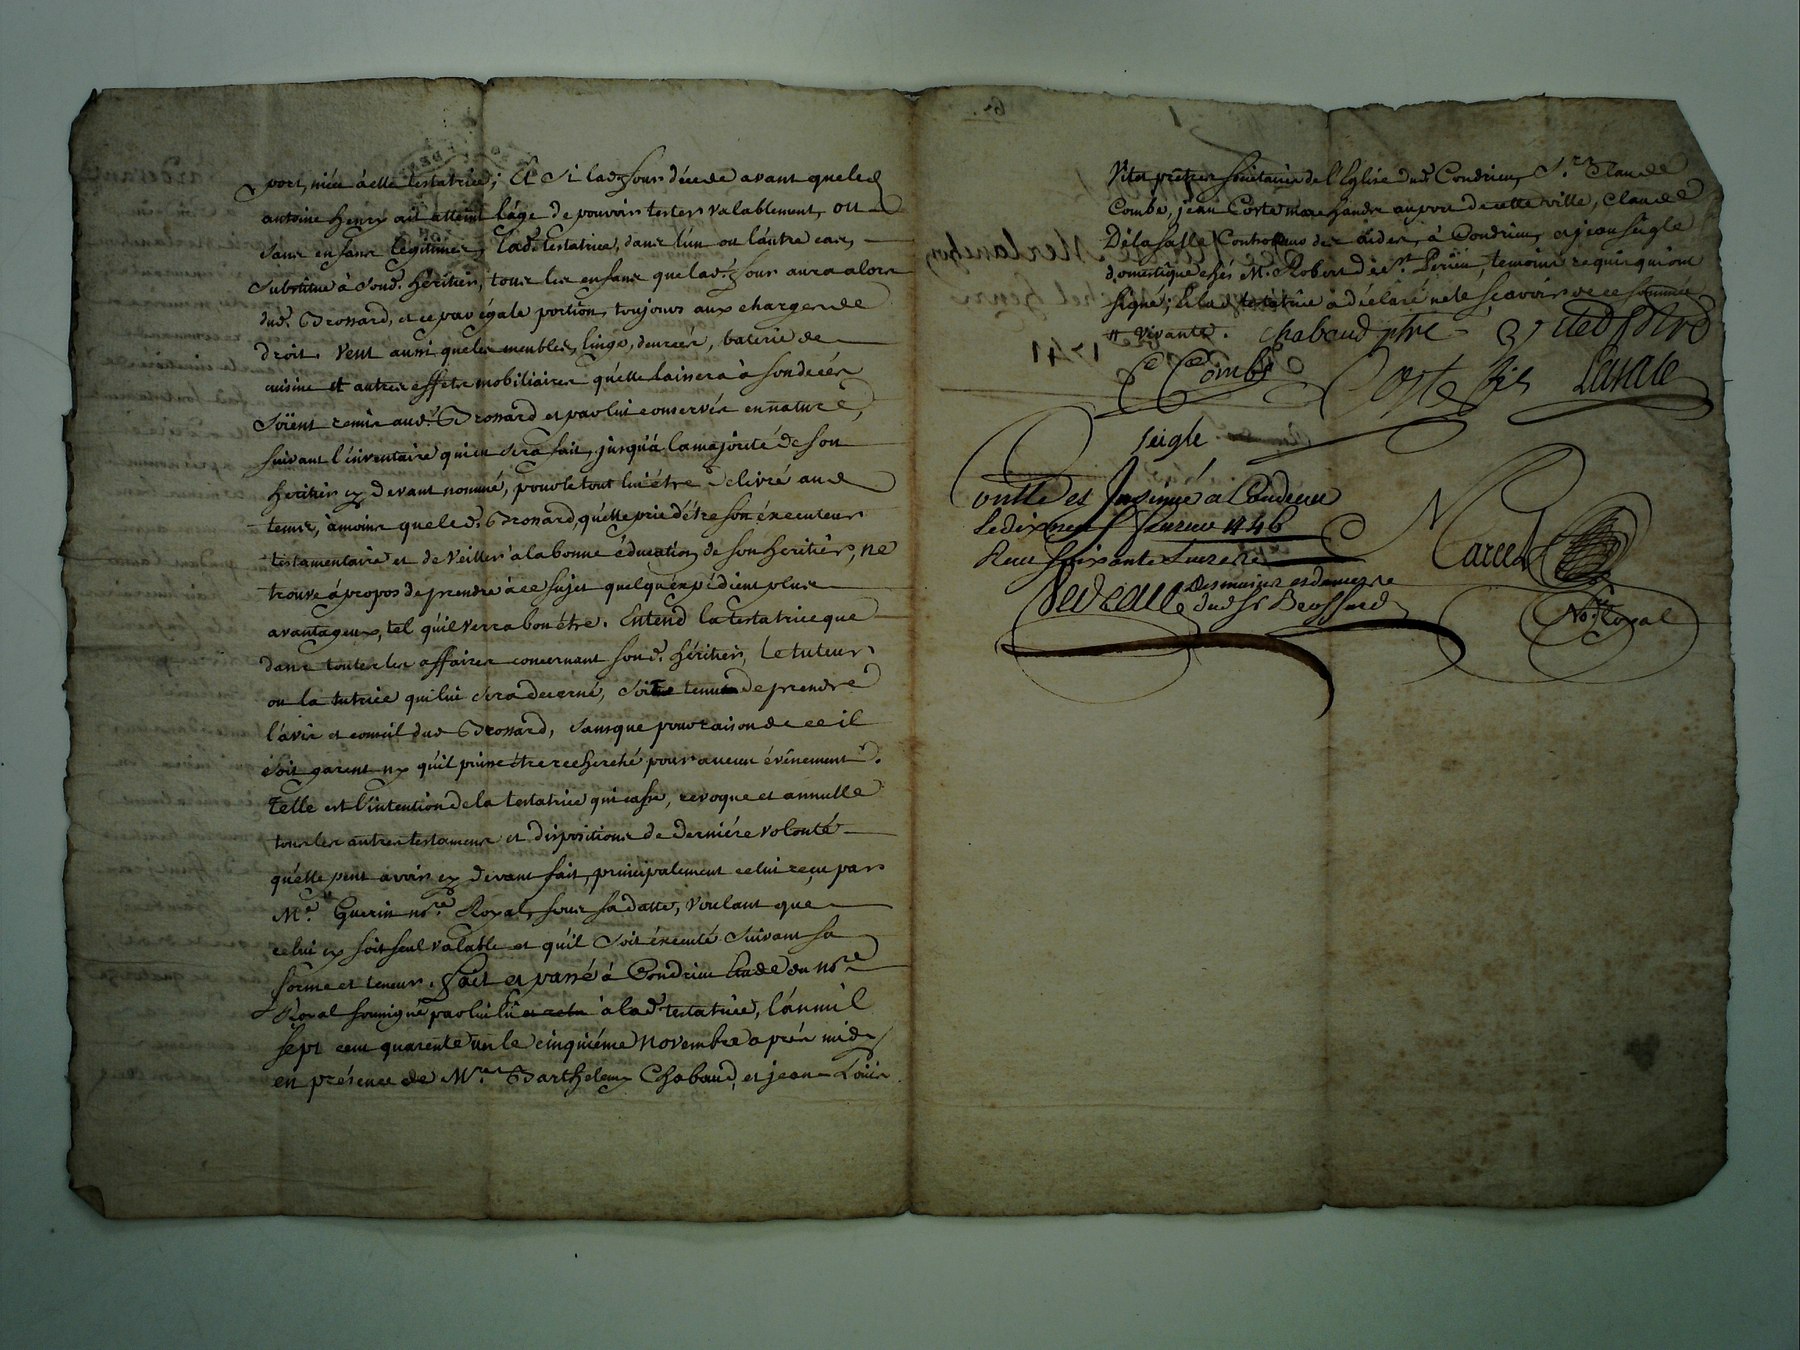 port, niéce à elle testatrice; Et Si lad. Jour décede avant que led
antoine henry ait atteint l'áge de pouvoir tester valablement, ou
sans enfans legitimes, lad. testatrice, dans l'un ou l'autre cas,
substitue à Sond. héritier, tous les enfans que lad. Jour aura alors
dud. Brossard, et ce par égale portion, toujours aux charges de
droit. Veut aussi que les meubles, linge, denrées, baterie de
cuisine et autres effets mobiliaires qu'elle laissera à son decés
Soient remis aud. Brossard et par lui conservés en nature,
suivant l'inventaire qui en sera fait, jusqu'à la majorité de son
heritier cy devant nommé, pour le tout lui étre delivré aud
tems, à moins que led. Brossard, qu'elle prie d'étre son éxecuteur
testamentaire et de veiller à la bonne éducation de son heritier, ne
trouve à propos de prendre à ce sujet quelqu'expédient plus
avantageux, tel qu'il verra bon étre. Entend la testatrice que
dans toutes les affaires concernant sond. héritier, Le tuteur
ou la tutrice qui lui sera decerné, soit tenu de prendre
l'avis et conseil dud Brossard, sans que pour raison de ce il
soit garent ny qu'il puisse étre recherché pour aucun événement.
Telle est l'intention de la testatrice qui casse, revoque et annulle
tous les autres testamens et dispositions de derniére volonté
qu'elle peut avoir cy devant fait, principalement celui reçu par
Me. Guerin nore. Royal, sous sa datte, voulant que
celui cy soit seul valable et qu'il soit éxecuté suivant sa
forme et teneur. fait et passé à Condrieu Etude du nore
Royal soussigné par lui lû à lad. testatrice, l'an mil
sept cent quarente un le cinquiéme novembre aprés midy
en présence de Mres. Barthelemy Chabaud, et jean Louis
Vitet prétres Societaires de l'Eglise dud. Condrieu, Sr. Claude
Combe, jean Coste marchandr au port de cette ville, Claude
Delasalle Controlleur des aides, à Condrieu, et jean seigle
domestique chés M. Robert de St. Perieu, temoins requis qui ont
signé; Et la testatrice a déclaré ne le sçavoir de ce sommée
vivante. Chabaud ptre Vitet ptre
C Combe Coste fils Lasale
seigle
Contllé et Insinué a Condrieu
Le dix neuf fevrier 1746
Reçu soixante
des mains et deniers
dud Sr Brossard
Marcel
Nore. Royal
Merlanchon
1741